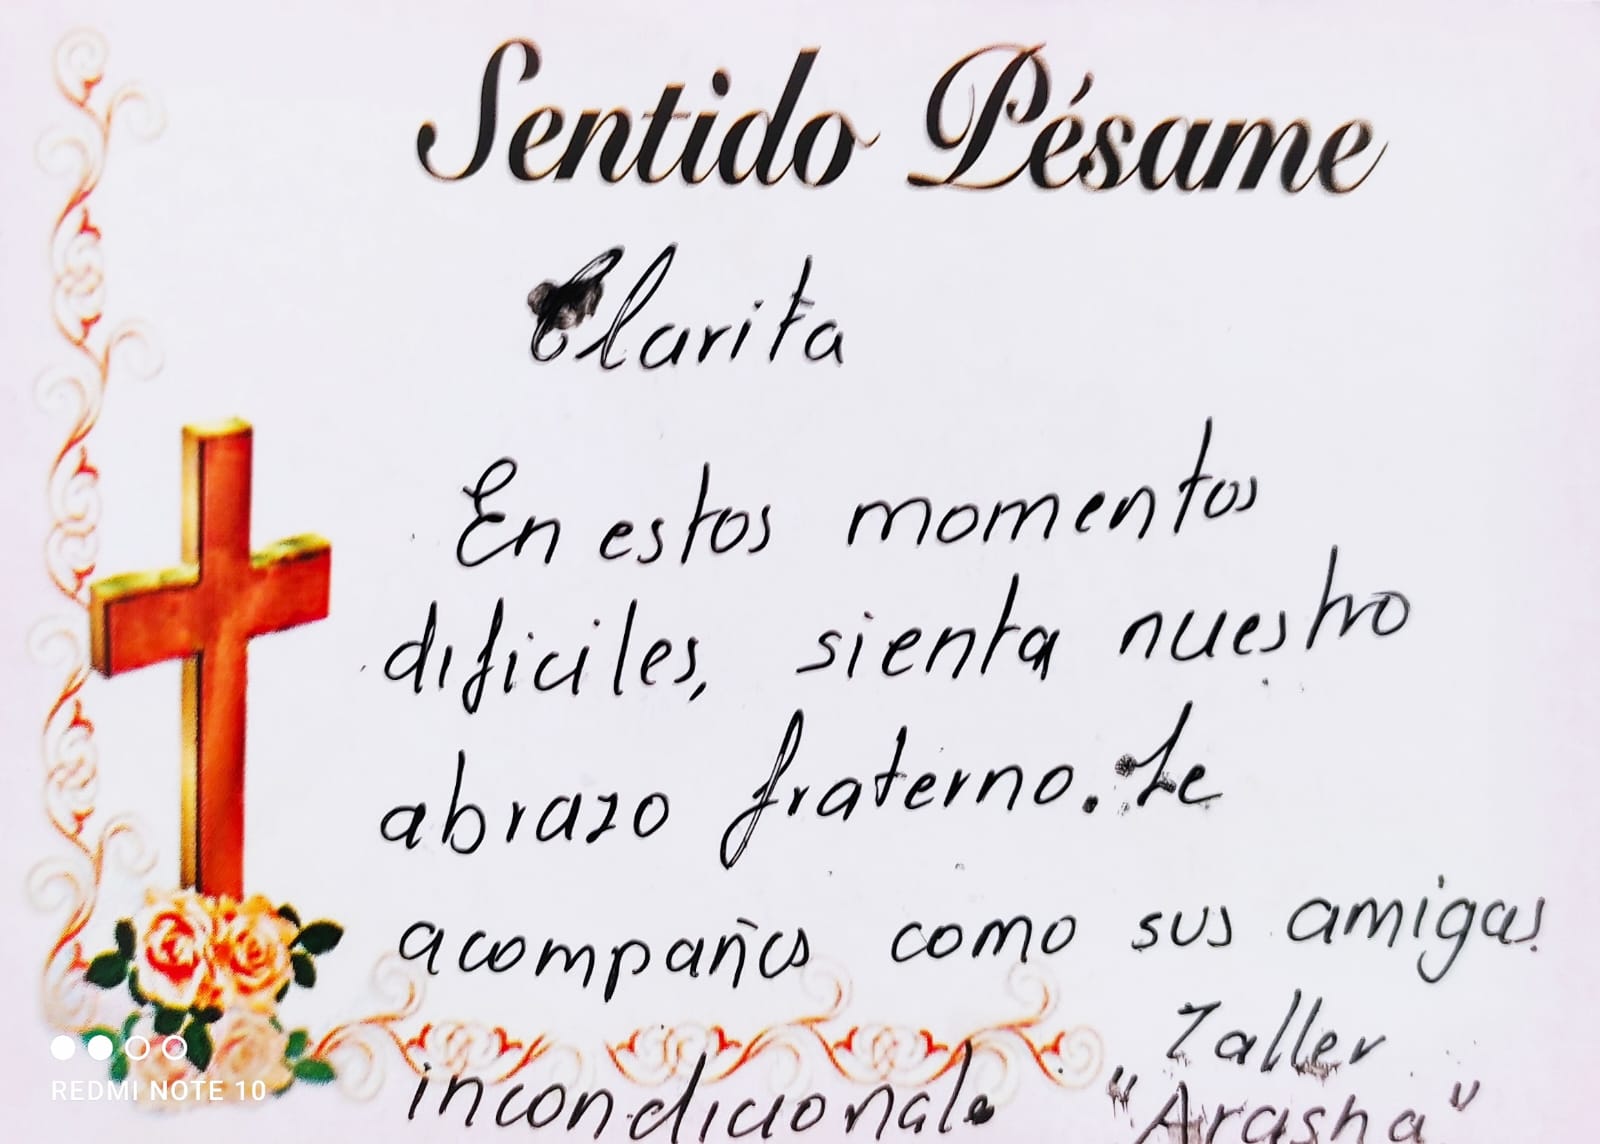 Sentido Pésame
Clarita
En estos momentos
dificiles, sienta nuestro
abrazo fraterno. Le
acompañas como sus amigas
incondicional.
Taller
"Arasha"
REDMI NOTE 10